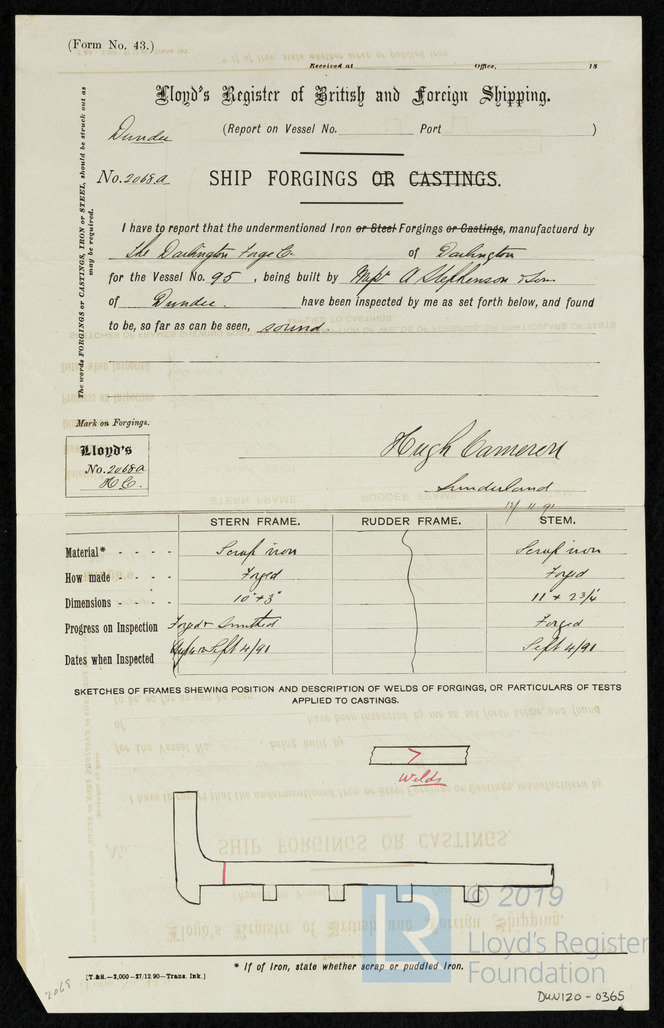 (Form No. 43.)
* If of Iron, state whether scrap or puddled Iron.
Received at Office, 18
Lloyd's Register of British and Foreign Shipping.
Dundee
(Report on Vessel No. Port )
The words FORGINGS or CASTINGS, IRON or STEEL, should be struck out as
may be required.
No. 2068a SHIP FORGINGS OR CASTINGS.
I have to report that the undermentioned Iron or Steel Forgings or Castings, manufactuerd by
The Darlington Forge Co. of Darlington
for the Vessel No. 95, being built by Messrs A Stephenson & Son
of Dundee. have been inspected by me as set forth below, and found
to be, so far as can be seen, sound.
Mark on Forgings.
Lloyd's
No. 2068a
H.C.
Hugh Cameron
Sunderland
11 91
STERN FRAME. RUDDER FRAME. STEM.
Material* - - - - Scrap iron Scrap iron
How made - - - - Forged Forged
Dimensions - - - - 10" + 3" 11 + 2 3/4
Progress on Inspection Forged & Smithed Forged
Dates when Inspected Sept 4/91 Sept 4/91
SKETCHES OF FRAMES SHEWING POSITION AND DESCRIPTION OF WELDS OF FORGINGS, OR PARTICULARS OF TESTS
APPLIED TO CASTINGS.
Welds
© 2019
LR Lloyd's Register
Foundation
* If of Iron, state whether scrap or puddled Iron.
[T.&S.—2,000—27/12.90—Trans. Ink.]
2068
DUN120-0365